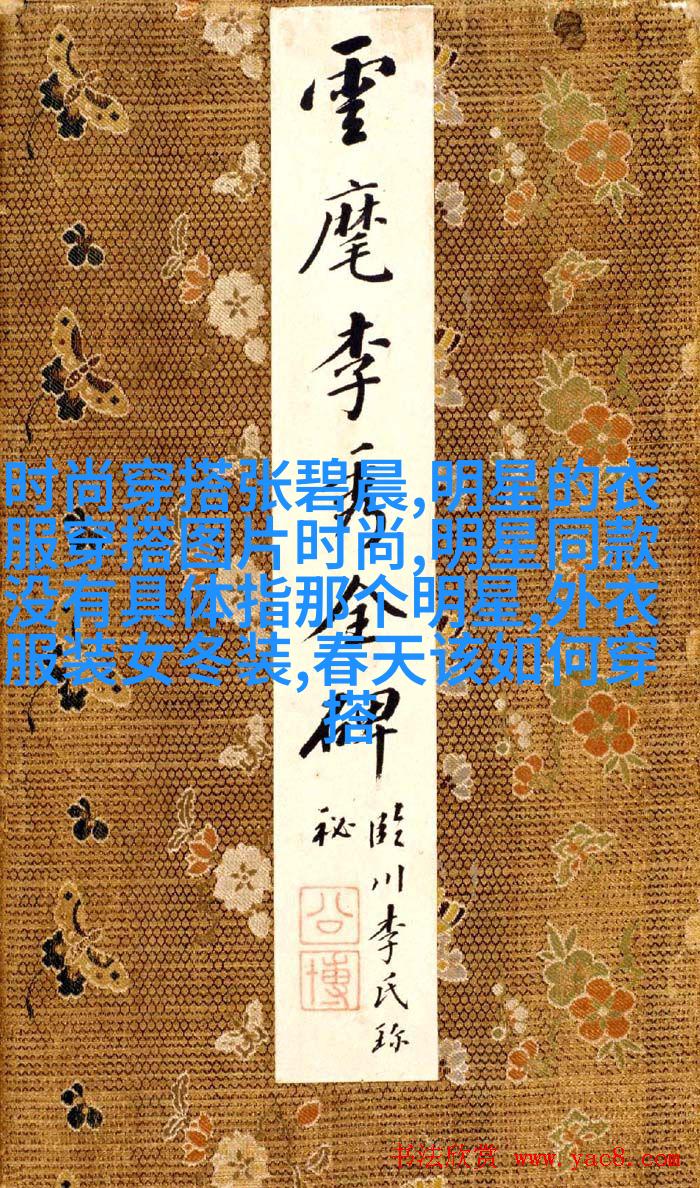 雲麾李秀全碑
臨川李氏珍
秘
公博
时尚穿搭张碧晨,明星的衣
服穿搭图片时尚,明星同款
没有具体指那个明星,外衣
服装女冬装,春天该如何穿
搭
书法欣赏 www.yac8.com